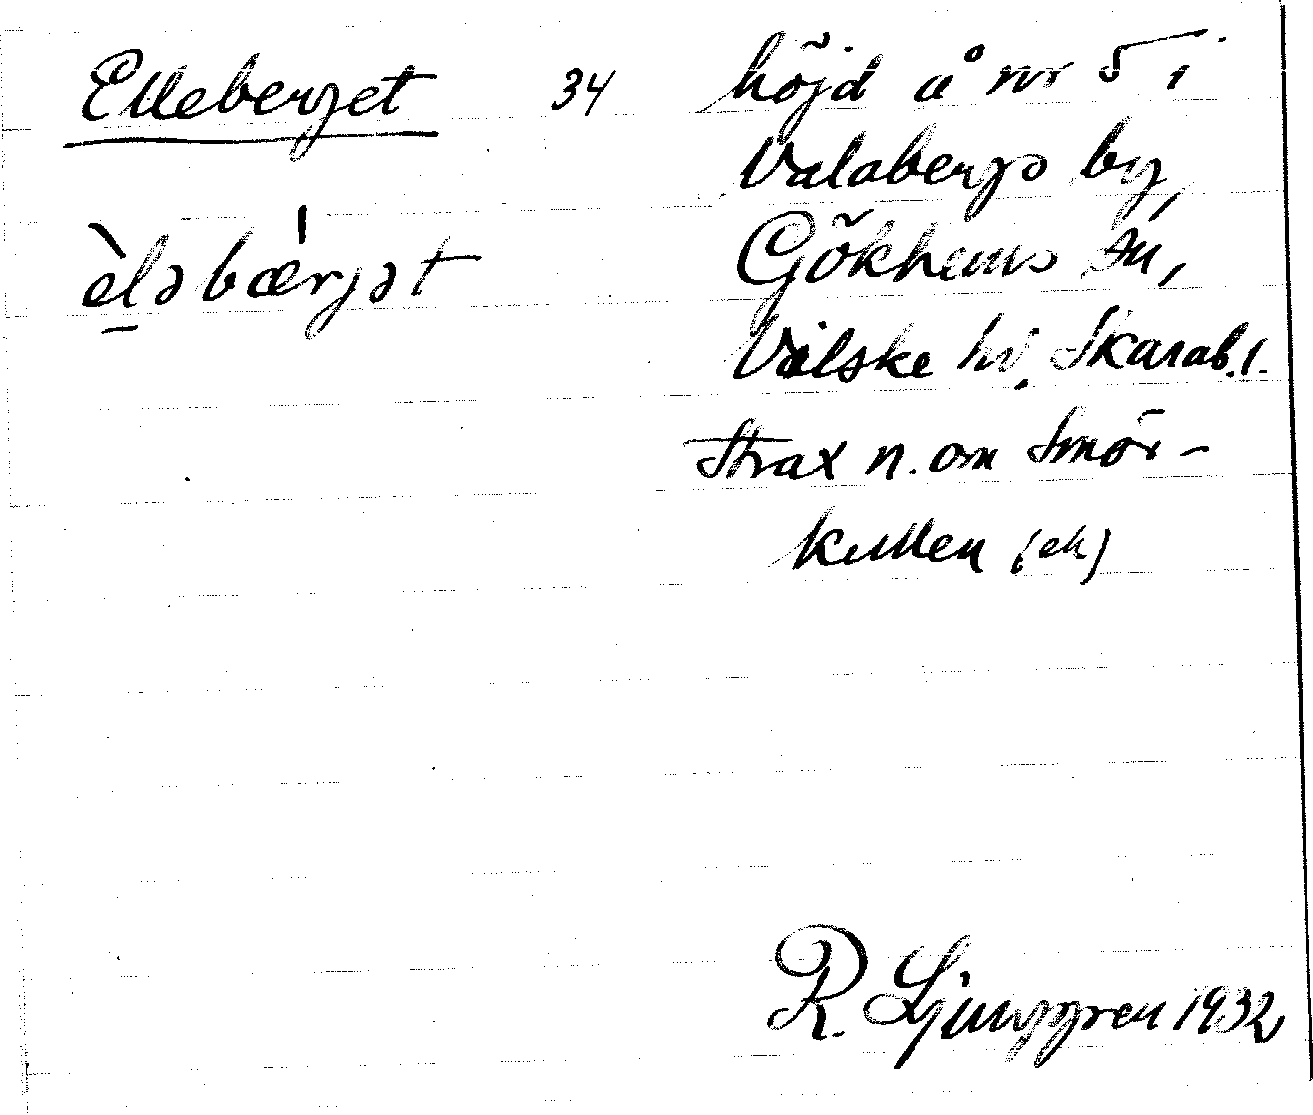 Elleberget 34 höjd å nr 5 i
Valabergs by,
èləbæ̍rjət
Gökhems sn,
Vilske hd. Skarab.l.
Strax n. om Smör-
kullen (ek)
R. Ljunggren 1932